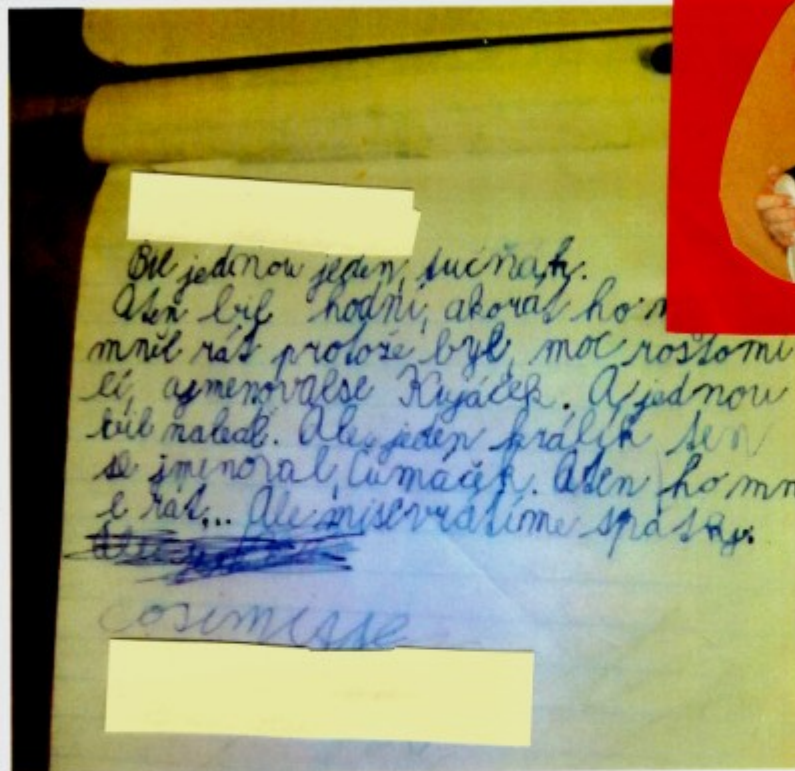 Bil jednou jeden, tučňák.
Aten bil hodní, akorát ho n
mněl rát protože byl, moc roztomi
lí, ajmenovalse Kujáček. A jednou
bil naledě. Ale jeden králík ten
se jmenoval, Čumáček. Aten ho mn
ě rát... Ale mise vrátíme spátky.